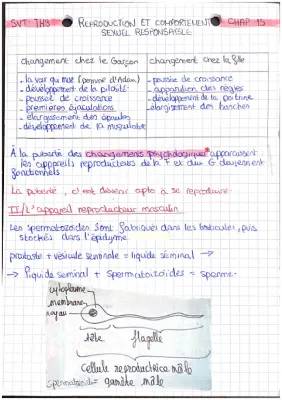 SVT TH3 REPRODUCTION ET COMPORTEMENT CHAP 15
SEXUEL RESPONSABLE
changement chez le Garçon
changement chez la fille
- la voix qui mue (pomme d'Adam)
- développement de la pilosité
- poussé de croissance
- premières éjaculations
- élargissement des épaules
- développement de la musculature
- poussée de croissance
- apparition des règles
- développement de la poitrine
- élargissement des hanches
À la puberté des changements psychologique* apparaissent
les appareils reproducteurs de la F et du G deviennent
fonctionnels
La puberté, c'est devenir apte à se reproduire.
II/L'appareil reproducteur masculin
Les spermatozoïdes sont fabriqués dans les testicules, puis
stockés dans l'épididyme.
prostate + vésicule séminale = liquide séminal →
→ liquide séminal + spermatozoïdes = sperme.
cytoplasme
membrane
noyau
tête flagelle
Cellule reproductrice mâle
spermatozoïde = gamète mâle